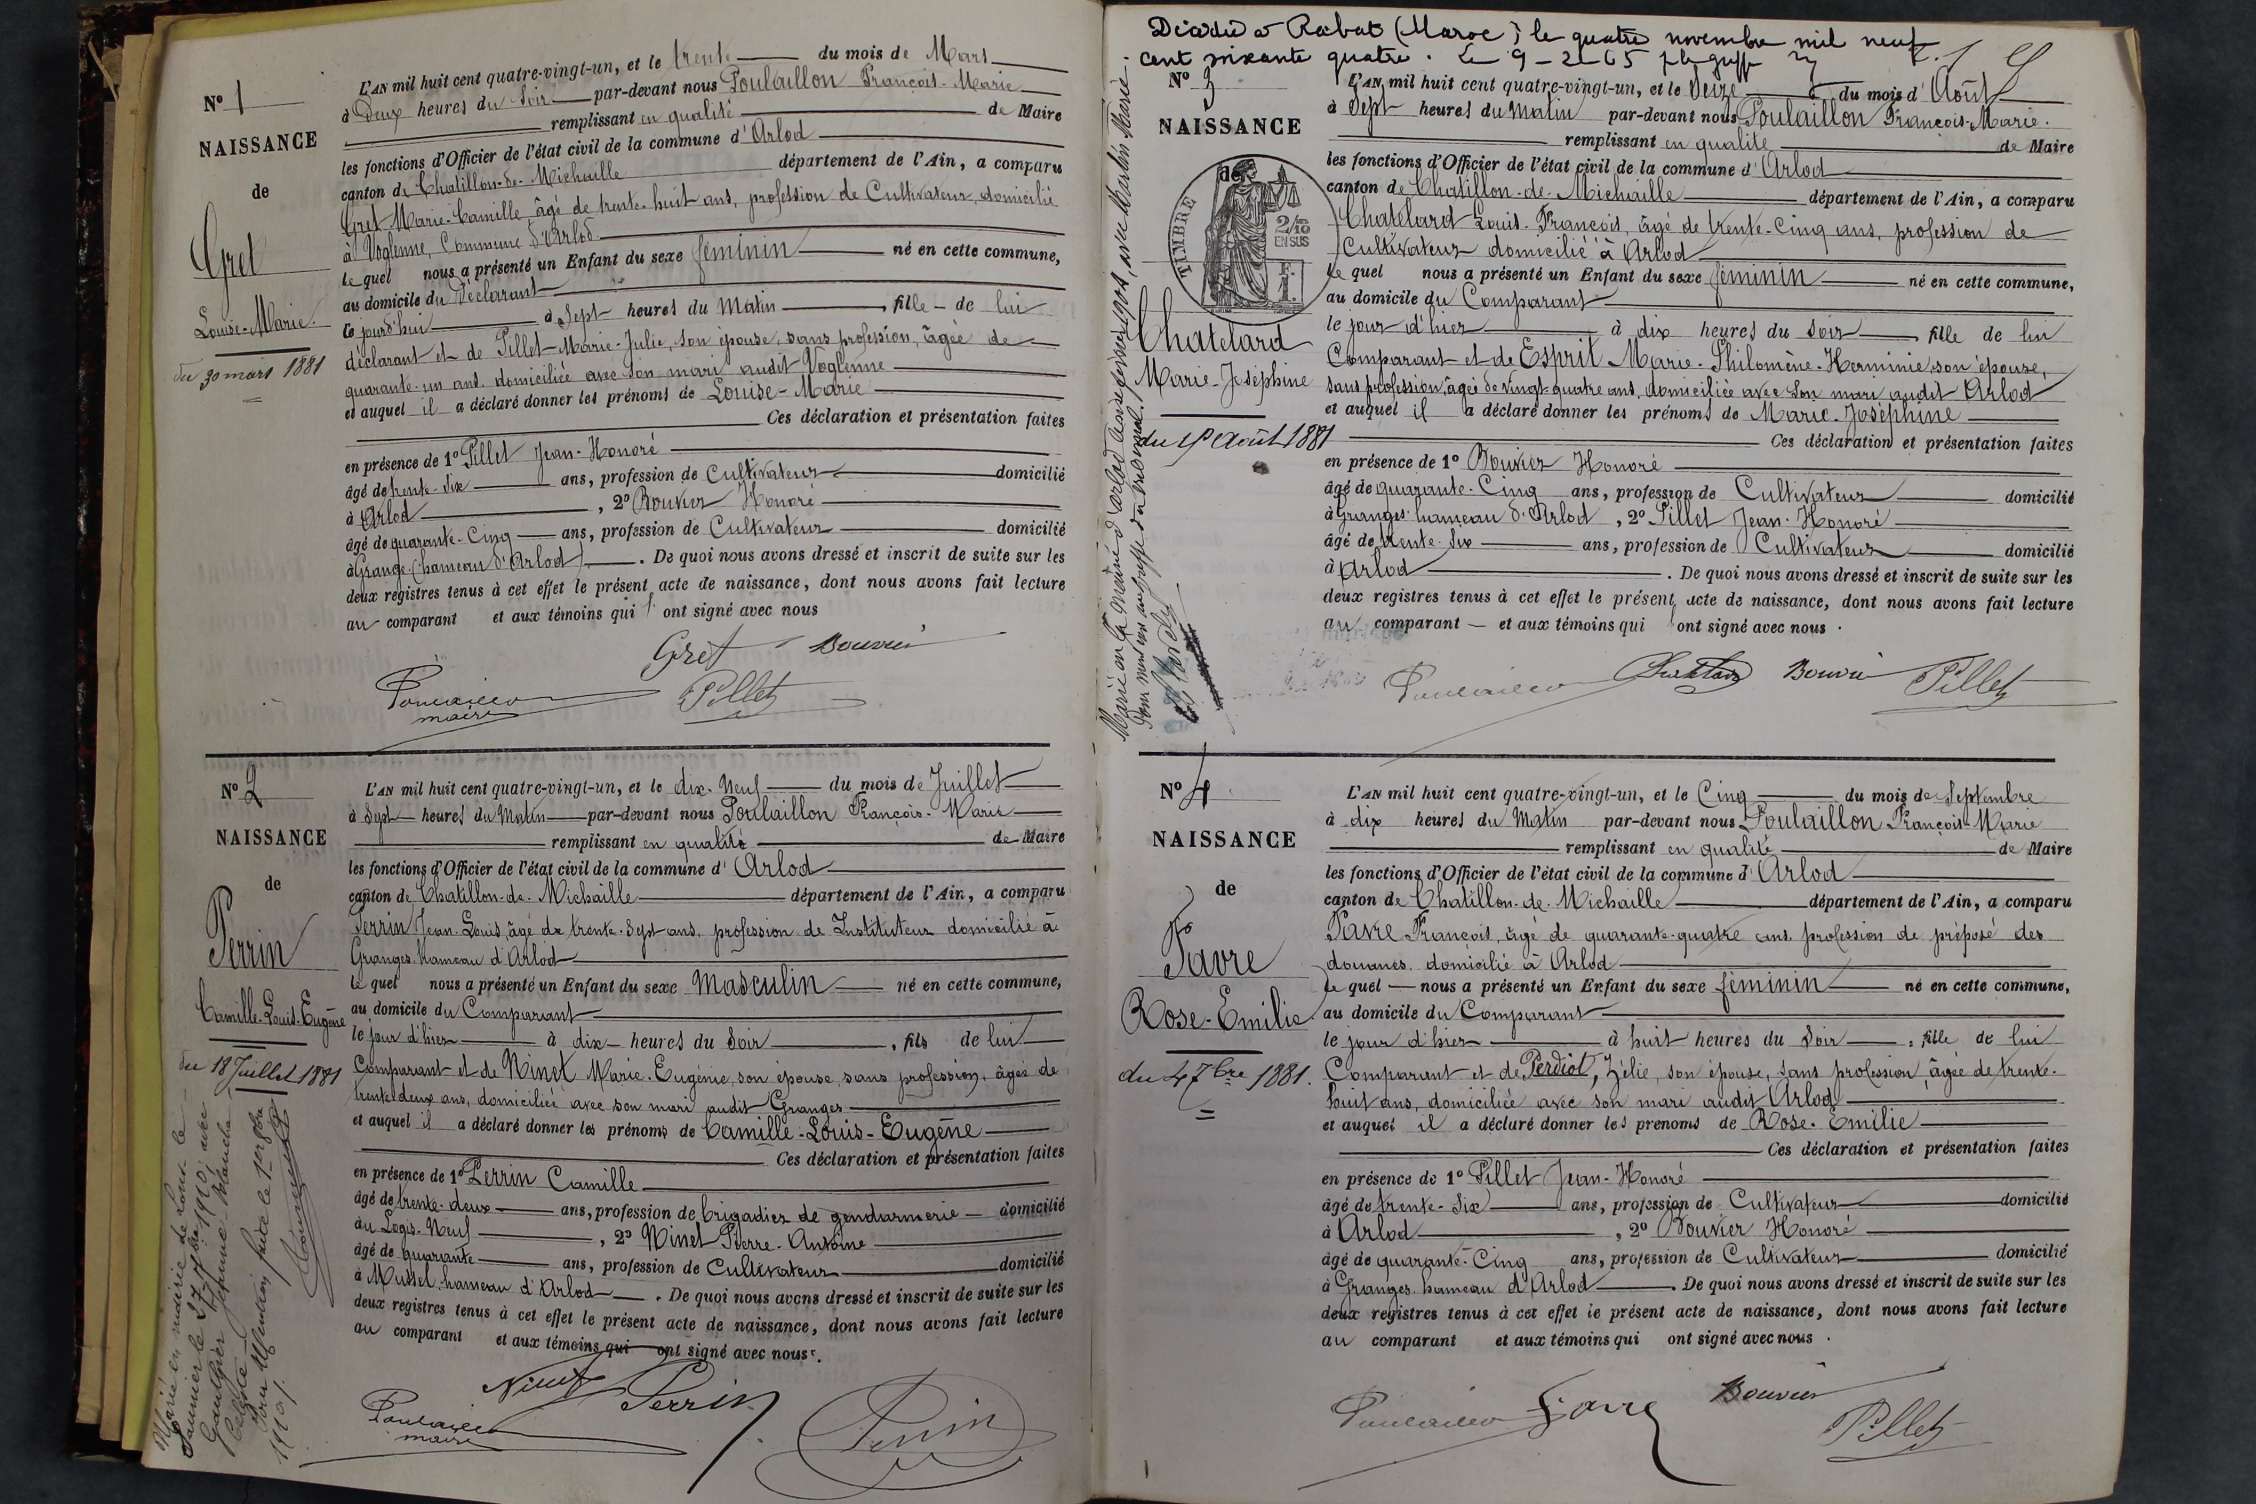 N° 1
NAISSANCE
de
Gret
Louise-Marie.
du 30 mars 1881
L'AN mil huit cent quatre-vingt-un, et le trente du mois de Mars
à Deux heures du Soir par-devant nous Poulaillon François-Marie
remplissant en qualité de Maire
les fonctions d'Officier de l'état civil de la commune d'Arlod
canton de Chatillon-de-Michaille département de l'Ain, a comparu
Gret Marie-Camille, âgé de trente-huit ans, profession de Cultivateur, domicilié
à Voglenne, Commune d'Arlod
le quel nous a présenté un Enfant du sexe féminin né en cette commune,
au domicile du Déclarant
ce jourd'hui à Sept heures du Matin, fille de lui
déclarant et de Pillet Marie-Julie, son épouse, sans profession, âgée de
quarante-un ans, domiciliée avec son mari audit Voglenne
et auquel il a déclaré donner les prénoms de Louise-Marie
Ces déclaration et présentation faites
en présence de 1° Pillet Jean-Honoré
âgé de trente-six ans, profession de Cultivateur domicilié
à Arlod, 2° Bouvier Honoré
âgé de quarante-Cinq ans, profession de Cultivateur domicilié
à Grange (hameau d'Arlod). De quoi nous avons dressé et inscrit de suite sur les
deux registres tenus à cet effet le présent acte de naissance, dont nous avons fait lecture
au comparant et aux témoins qui ont signé avec nous
Gret Bouvier
Poulaillon Pillet
maire
N° 2
NAISSANCE
de
Perrin
Camille-Louis-Eugène
du 18 Juillet 1881
Marié en mairie de Lons-le-
Saunier le 27 7bre 1910, avec
Gauthier Jeanne Blanche
Céleste
Pour Mention faite le 1er 8bre
1910.
L'AN mil huit cent quatre-vingt-un, et le dix-Neuf du mois de Juillet
à Sept heures du Matin par-devant nous Poulaillon François-Marie
remplissant en qualité de Maire
les fonctions d'Officier de l'état civil de la commune d'Arlod
canton de Chatillon-de-Michaille département de l'Ain, a comparu
Perrin Jean-Louis, âgé de trente-Sept ans, profession de Instituteur domicilié à
Granges hameau d'Arlod
le quel nous a présenté un Enfant du sexe Masculin né en cette commune,
au domicile du Comparant
le jour d'hier à dix heures du Soir, fils de lui
Comparant et de Ninet Marie-Eugénie, son épouse, sans profession, âgée de
trente deux ans, domiciliée avec son mari audit Granges
et auquel il a déclaré donner les prénoms de Camille-Louis-Eugène
Ces déclaration et présentation faites
en présence de 1° Perrin Camille
âgé de trente-deux ans, profession de brigadier de gendarmerie domicilié
au Logis-Neuf, 2° Ninet Pierre-Antoine
âgé de quarante ans, profession de Cultivateur domicilié
à Mussel hameau d'Arlod. De quoi nous avons dressé et inscrit de suite sur les
deux registres tenus à cet effet le présent acte de naissance, dont nous avons fait lecture
au comparant et aux témoins qui ont signé avec nous.
Ninet Perrin
Poulaillon Perrin
maire
Décédée à Rabat (Maroc) le quatre novembre mil neuf
cent soixante quatre. Le 9-2-65
N° 3
NAISSANCE
de
TIMBRE
2/10
EN SUS
Chatelard
Marie-Joséphine
du 15 Août 1881
L'AN mil huit cent quatre-vingt-un, et le Seize du mois d'Août
à Sept heures du Matin par-devant nous Poulaillon François-Marie.
remplissant en qualité de Maire
les fonctions d'Officier de l'état civil de la commune d'Arlod
canton de Chatillon-de-Michaille département de l'Ain, a comparu
Chatelard Louis-François, âgé de trente-Cinq ans, profession de
Cultivateur domicilié à Arlod
le quel nous a présenté un Enfant du sexe féminin né en cette commune,
au domicile du Comparant
le jour d'hier à dix heures du Soir, fille de lui
Comparant et de Esprit Marie-Philomène-Herminie, son épouse,
sans profession, âgée de vingt-quatre ans, domiciliée avec son mari audit Arlod
et auquel il a déclaré donner les prénoms de Marie-Joséphine
Ces déclaration et présentation faites
en présence de 1° Bouvier Honoré
âgé de quarante-Cinq ans, profession de Cultivateur domicilié
à Granges hameau d'Arlod, 2° Pillet Jean-Honoré
âgé de trente-Six ans, profession de Cultivateur domicilié
à Arlod. De quoi nous avons dressé et inscrit de suite sur les
deux registres tenus à cet effet le présent acte de naissance, dont nous avons fait lecture
au comparant et aux témoins qui ont signé avec nous.
Poulaillon Chatelard Bouvier Pillet
N° 4
NAISSANCE
de
Favre
Rose-Emilie
du 4 7bre 1881.
L'AN mil huit cent quatre-vingt-un, et le Cinq du mois de Septembre
à dix heures du Matin par-devant nous Poulaillon François-Marie
remplissant en qualité de Maire
les fonctions d'Officier de l'état civil de la commune d'Arlod
canton de Chatillon-de-Michaille département de l'Ain, a comparu
Favre François, âgé de quarante-quatre ans, profession de préposé des
douanes, domicilié à Arlod
le quel nous a présenté un Enfant du sexe féminin né en cette commune,
au domicile du Comparant
le jour d'hier à huit heures du Soir, fille de lui
Comparant et de Perdiot, Zélie, son épouse, sans profession, âgée de trente-
huit ans, domiciliée avec son mari audit Arlod
et auquel il a déclaré donner les prénoms de Rose-Emilie
Ces déclaration et présentation faites
en présence de 1° Pillet Jean-Honoré
âgé de trente-Six ans, profession de Cultivateur domicilié
à Arlod, 2° Bouvier Honoré
âgé de quarante-Cinq ans, profession de Cultivateur domicilié
à Granges hameau d'Arlod. De quoi nous avons dressé et inscrit de suite sur les
deux registres tenus à cet effet le présent acte de naissance, dont nous avons fait lecture
au comparant et aux témoins qui ont signé avec nous.
Poulaillon Favre Bouvier Pillet